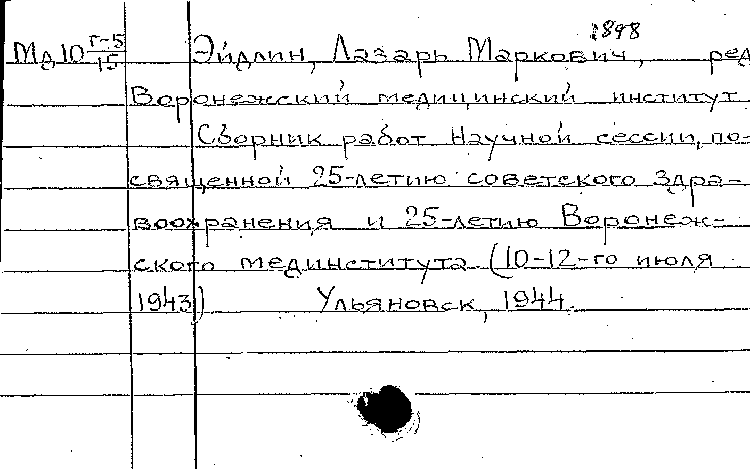 1898
Мд10 г-5/15 Эйдлин, Лазарь Маркович, ред
Воронежский медицинский институт
Сборник работ Научной сессии, по-
священной 25-летию советского здра-
воохранения и 25-летию Воронеж-
ского мединститута (10-12-го июля
1943) Ульяновск, 1944.